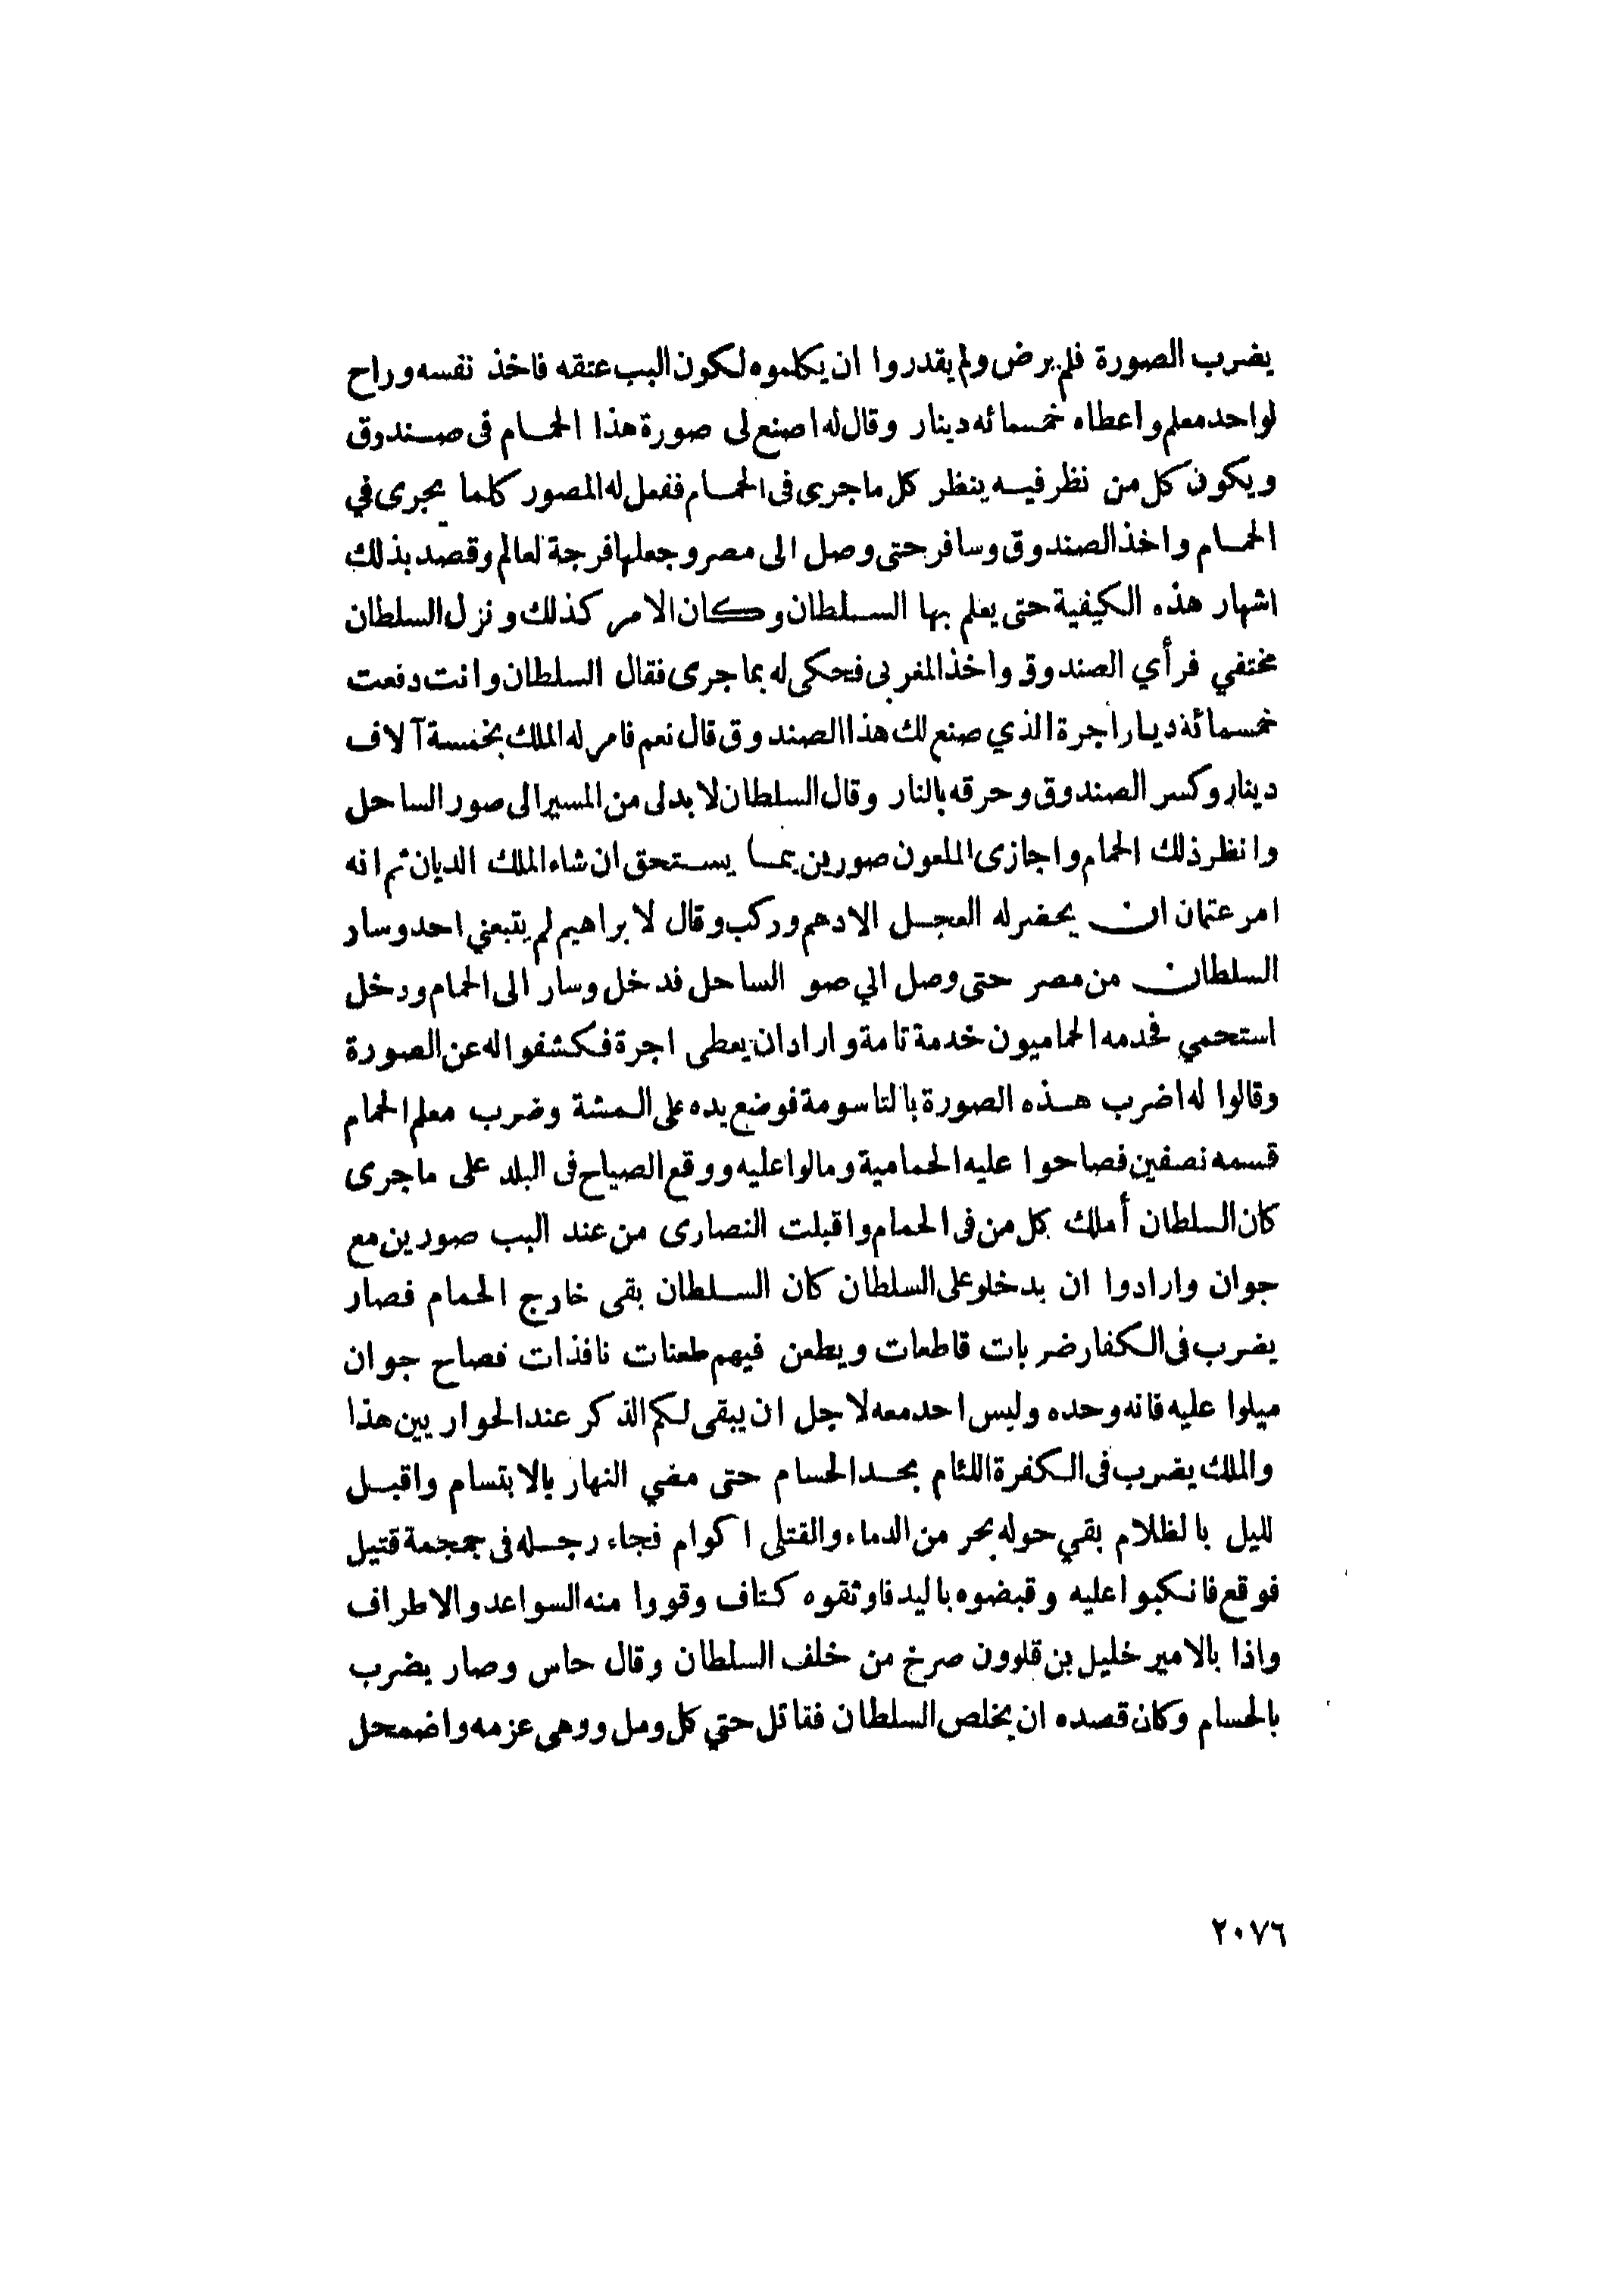 يضرب الصورة فلم يرض ولم يقدروا ان يكلموه لكون البب عتقه فاخذ نفسه وراح
لواحد معلم واعطاه خمسمائه دينار وقال له اصنع لى صورة هذا الحمام فى صندوق
ويكون كل من نظر فيه ينظر كل ما جرى فى الحمام ففعل له المصور كلما يجرى في
الحمام واخذ الصندوق وسافر حتى وصل الى مصر وجعلها فرجة لعالم وقصد بذلك
اشهار هذه الكيفية حتى يعلم بها السلطان وكان الامر كذلك ونزل السلطان
مختفي فرأي الصندوق واخذ المغربى فحكى له بما جرى فقال السلطان وانت دفعت
خمسمائة ديار اجرة الذي صنع لك هذا الصندوق قال نعم فامر له الملك بخمسة آلاف
دينار وكسر الصندوق وحرقه بالنار وقال السلطان لا بد لى من المسير الى صور الساحل
وانظر ذلك الحمام واجازى الملعون صورين بما يستحق ان شاء الملك الديان ثم انه
امر عثمان ان يحضر له العجل الادهم وركب وقال لابراهيم لم يتبعني احد وسار
السلطان من مصر حتى وصل الي صو الساحل فدخل وسار الى الحمام ودخل
استحمي فخدمه الحماميون خدمة تامة واراد ان يعطى اجرة فكشفوا له عن الصورة
وقالوا له اضرب هذه الصورة بالتاسومة فوضع يده على المشة وضرب معلم الحمام
قسمه نصفين فصاحوا عليه الحمامية ومالوا عليه ووقع الصياح فى البلد على ما جرى
كان السلطان أهلك كل من فى الحمام واقبلت النصارى من عند البب صورين مع
جوان وارادوا ان يدخلو على السلطان كان السلطان بقى خارج الحمام فصار
يضرب فى الكفار ضربات قاطعات ويطعن فيهم طعنات نافذات فصاح جوان
ميلوا عليه فانه وحده وليس احد معه لاجل ان يبقى لكم الذكر عند الحواريين هذا
والملك يضرب فى الكفرة اللئام بحد الحسام حتى مضي النهار بالابتسام واقبل
لليل بالظلام بقي حوله بحر من الدماء والقتلى اكوام فجاء رجله فى جمجمة قتيل
فوقع فانكبوا عليه وقبضوه باليد فاوثقوه كتاف وقووا منه السواعد والاطراف
واذا بالامير خليل بن قلوون صرخ من خلف السلطان وقال حاس وصار يضرب
بالحسام وكان قصده ان يخلص السلطان فقاتل حتي كل ومل ووهى عزمه واضمحل
٢٠٧٦